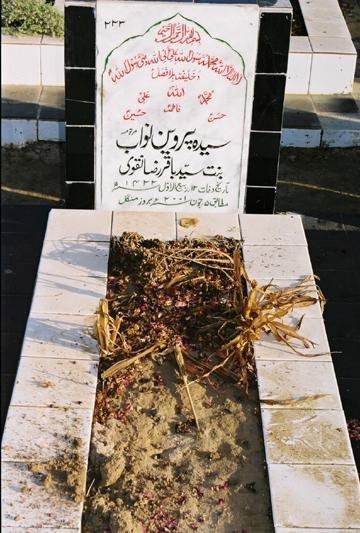 ۲۲۳
بسم اللہ الرحمن الرحیم
لا الہ الا اللہ محمد رسول اللہ علی ولی اللہ وصی رسول اللہ
و خلیفتہ بلا فصل
اللہ
محمدؐ علیؑ
فاطمہؑ
حسنؑ حسینؑ
سیدہ پروین نواب مرحومہ
بنت سید باقر رضا نقوی
تاریخ وفات ۱۲ ربیع الاول ۱۴۲۲ھ
مطابق ۵ جون ۲۰۰۱ء بروز منگل